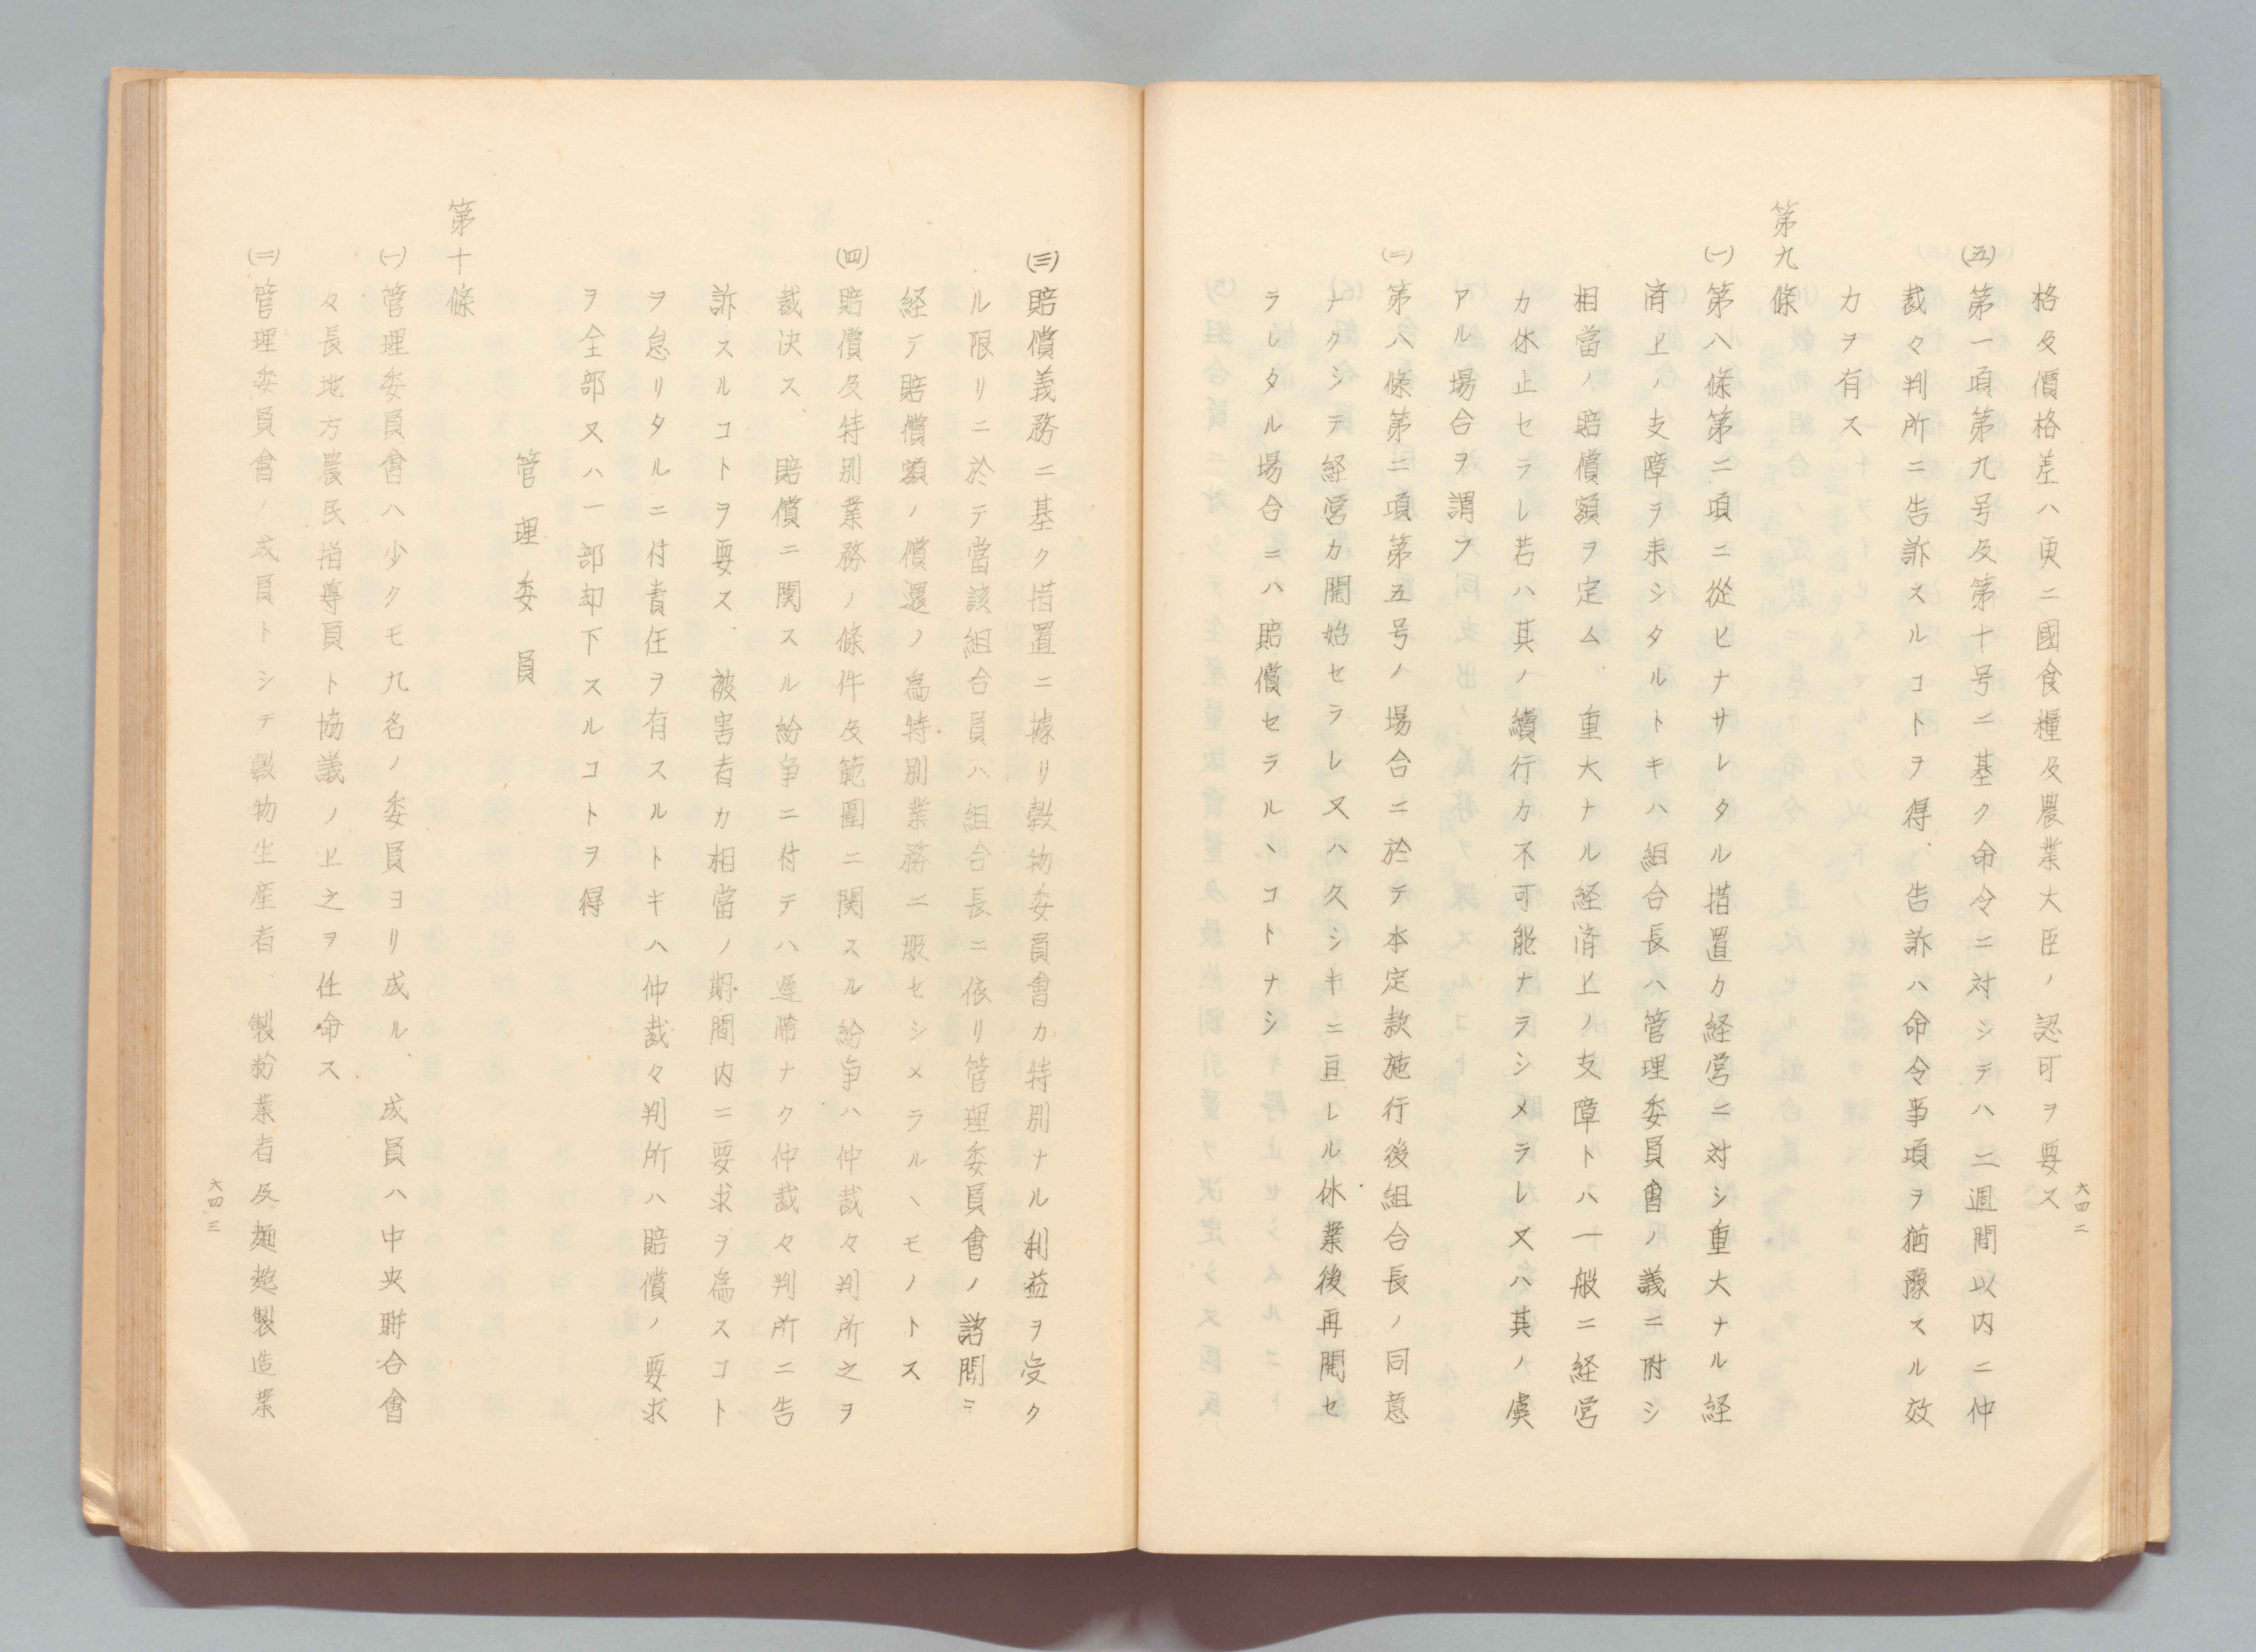 六四二
格及價格差ハ更ニ國食糧及農業大臣ノ認可ヲ要ス
(五)第一項第九号及第十号ニ基ク命令ニ対シテハ二週間以内ニ仲
裁々判所ニ告訴スルコトヲ得、告訴ハ命令事項ヲ猶豫スル效
力ヲ有ス
第九條
(一)第八條第二項ニ從ヒナサレタル措置カ経営ニ対シ重大ナル経
済上ノ支障ヲ来シタルトキハ組合長ハ管理委員會ノ議ニ附シ
相當ノ賠償額ヲ定ム、重大ナル経済上ノ支障トハ一般ニ経営
カ休止セラレ若ハ其ノ續行カ不可能ナラシメラレ又ハ其ノ虞
アル場合ヲ謂フ
(二)第八條第二項第五号ノ場合ニ於テ本定款施行後組合長ノ同意
ナクシテ経営カ開始セラレ又ハ久シキニ亘レル休業後再開セ
ラレタル場合ニハ賠償セラルヽコトナシ
(三)賠償義務ニ基ク措置ニ據リ穀物委員會カ特別ナル利益ヲ受ク
ル限リニ於テ當該組合員ハ組合長ニ依リ管理委員會ノ諮問ヲ
経テ賠償額ノ償還ノ為特別業務ニ服セシメラルヽモノトス
(四)賠償及特別業務ノ條件及範圍ニ関スル紛争ハ仲裁々判所之ヲ
裁決ス、賠償ニ関スル紛争ニ付テハ遅滞ナク仲裁々判所ニ告
訴スルコトヲ要ス、被害者カ相當ノ期間内ニ要求ヲ為スコト
ヲ怠リタルニ付責任ヲ有スルトキハ仲裁々判所ハ賠償ノ要求
ヲ全部又ハ一部却下スルコトヲ得
管理委員
第十條
(一)管理委員會ハ少クモ九名ノ委員ヨリ成ル、成員ハ中央聯合會
々長地方農民指導員ト協議ノ上之ヲ任命ス
(二)管理委員會ノ成員トシテ穀物生産者、製粉業者及麺麭製造業
六四三